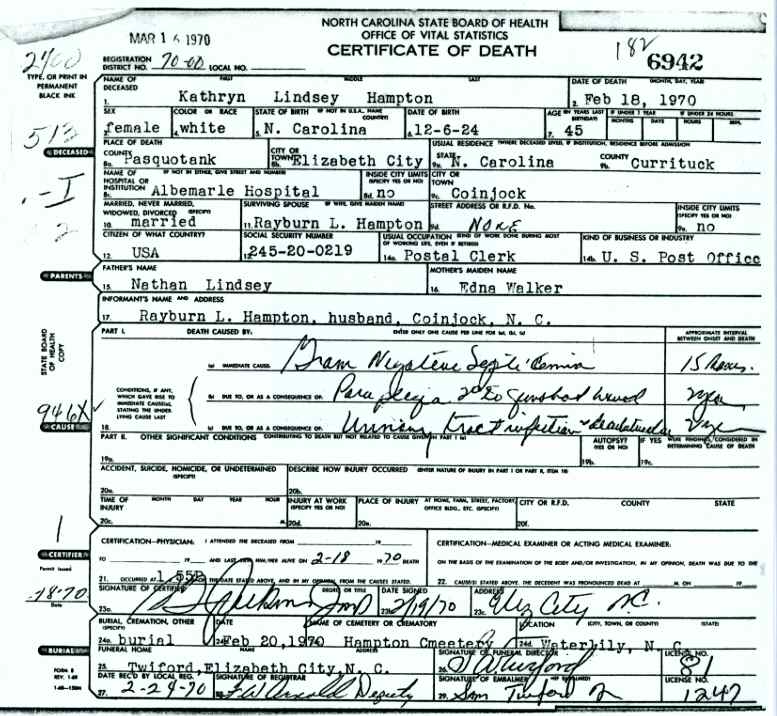 NORTH CAROLINA STATE BOARD OF HEALTH
OFFICE OF VITAL STATISTICS
CERTIFICATE OF DEATH
MAR 16 1970
182
6942
2400
REGISTRATION DISTRICT NO. 70-00 LOCAL NO.
TYPE, OR PRINT IN PERMANENT BLACK INK
NAME OF DECEASED FIRST MIDDLE LAST DATE OF DEATH (MONTH, DAY, YEAR)
1. Kathryn Lindsey Hampton 2. Feb 18, 1970
SEX COLOR OR RACE STATE OF BIRTH (IF NOT IN U.S.A., NAME COUNTRY) DATE OF BIRTH AGE (IN YEARS LAST BIRTHDAY) IF UNDER 1 YEAR IF UNDER 24 HOURS
MONTHS DAYS HOURS MIN.
3. female 4. white 5. N. Carolina 6. 12-6-24 7. 45
513
DECEASED
PLACE OF DEATH USUAL RESIDENCE (WHERE DECEASED LIVED, IF INSTITUTION, RESIDENCE BEFORE ADMISSION)
COUNTY 8a. Pasquotank CITY OR TOWN 8b. Elizabeth City STATE 9a. N. Carolina COUNTY 9b. Currituck
NAME OF HOSPITAL OR INSTITUTION IF NOT IN EITHER, GIVE STREET AND NUMBER INSIDE CITY LIMITS (SPECIFY YES OR NO) CITY OR TOWN
8c. Albemarle Hospital 8d. no 9c. Coinjock
MARRIED, NEVER MARRIED, WIDOWED, DIVORCED (SPECIFY) SURVIVING SPOUSE (IF WIFE, GIVE MAIDEN NAME) STREET ADDRESS OR R.F.D. No. INSIDE CITY LIMITS (SPECIFY YES OR NO)
10. married 11. Rayburn L. Hampton 9d. NONE 9e. no
CITIZEN OF WHAT COUNTRY? SOCIAL SECURITY NUMBER USUAL OCCUPATION (KIND OF WORK DONE DURING MOST OF WORKING LIFE, EVEN IF RETIRED) KIND OF BUSINESS OR INDUSTRY
12. USA 13. 245-20-0219 14a. Postal Clerk 14b. U. S. Post Office
PARENTS
FATHER'S NAME MOTHER'S MAIDEN NAME
15. Nathan Lindsey 16. Edna Walker
INFORMANT'S NAME AND ADDRESS
17. Rayburn L. Hampton, husband, Coinjock, N. C.
STATE BOARD OF HEALTH COPY
PART I. DEATH CAUSED BY: ENTER ONLY ONE CAUSE PER LINE FOR (a), (b), (c) APPROXIMATE INTERVAL BETWEEN ONSET AND DEATH
(a) IMMEDIATE CAUSE Gram Negative Septicemia 15 hours.
CONDITIONS, IF ANY, WHICH GAVE RISE TO IMMEDIATE CAUSE(S), STATING THE UNDERLYING CAUSE LAST
(b) DUE TO, OR AS A CONSEQUENCE OF: Paraplegia 2° to gunshot wound
946X
CAUSE
18. (c) DUE TO, OR AS A CONSEQUENCE OF: Urinary tract infection
PART II. OTHER SIGNIFICANT CONDITIONS CONTRIBUTING TO DEATH BUT NOT RELATED TO CAUSE GIVEN IN PART I (a) AUTOPSY? (YES OR NO) IF YES WERE FINDINGS CONSIDERED IN DETERMINING CAUSE OF DEATH
19a. 19b. 19c.
ACCIDENT, SUICIDE, HOMICIDE, OR UNDETERMINED (SPECIFY) DESCRIBE HOW INJURY OCCURRED (ENTER NATURE OF INJURY IN PART I OR PART II, ITEM 18)
20a. 20b.
TIME OF INJURY MONTH DAY YEAR HOUR INJURY AT WORK (SPECIFY YES OR NO) PLACE OF INJURY AT HOME, FARM, STREET, FACTORY, OFFICE BLDG., ETC. (SPECIFY) CITY OR R.F.D. COUNTY STATE
20c. M. 20d. 20e. 20f.
1
CERTIFIER
CERTIFICATION—PHYSICIAN: I ATTENDED THE DECEASED FROM 19 CERTIFICATION—MEDICAL EXAMINER OR ACTING MEDICAL EXAMINER:
TO 19 AND LAST SAW HIM/HER ALIVE ON 2-18 1970 DEATH ON THE BASIS OF THE EXAMINATION OF THE BODY AND/OR INVESTIGATION, IN MY OPINION, DEATH WAS DUE TO THE
21. OCCURRED AT 1:55P THE DATE STATED ABOVE, AND IN MY OPINION FROM THE CAUSES STATED. 22. CAUSE(S) STATED ABOVE. THE DECEDENT WAS PRONOUNCED DEAD AT M. ON 19
Permit issued
18-70
Date
SIGNATURE OF CERTIFIER DEGREE OR TITLE DATE SIGNED ADDRESS
23a. 23b. 2/19/70 23c. Eliz City N.C.
BURIAL, CREMATION, OTHER (SPECIFY) DATE NAME OF CEMETERY OR CREMATORY LOCATION (CITY, TOWN, OR COUNTY) (STATE)
24a. burial 24b. Feb 20, 1970 Hampton Cmeetery 24d. Waterlily, N. C.
BURIAL
FUNERAL HOME NAME ADDRESS SIGNATURE OF FUNERAL DIRECTOR LICENSE NO.
25. Twiford, Elizabeth City, N. C. 26. 81
FORM 8
REV. 1-69
DATE REC'D BY LOCAL REG. SIGNATURE OF REGISTRAR SIGNATURE OF EMBALMER (IF EMBALMED) LICENSE NO.
27. 2-24-70 28. Deputy 29. Sam Twiford 1247